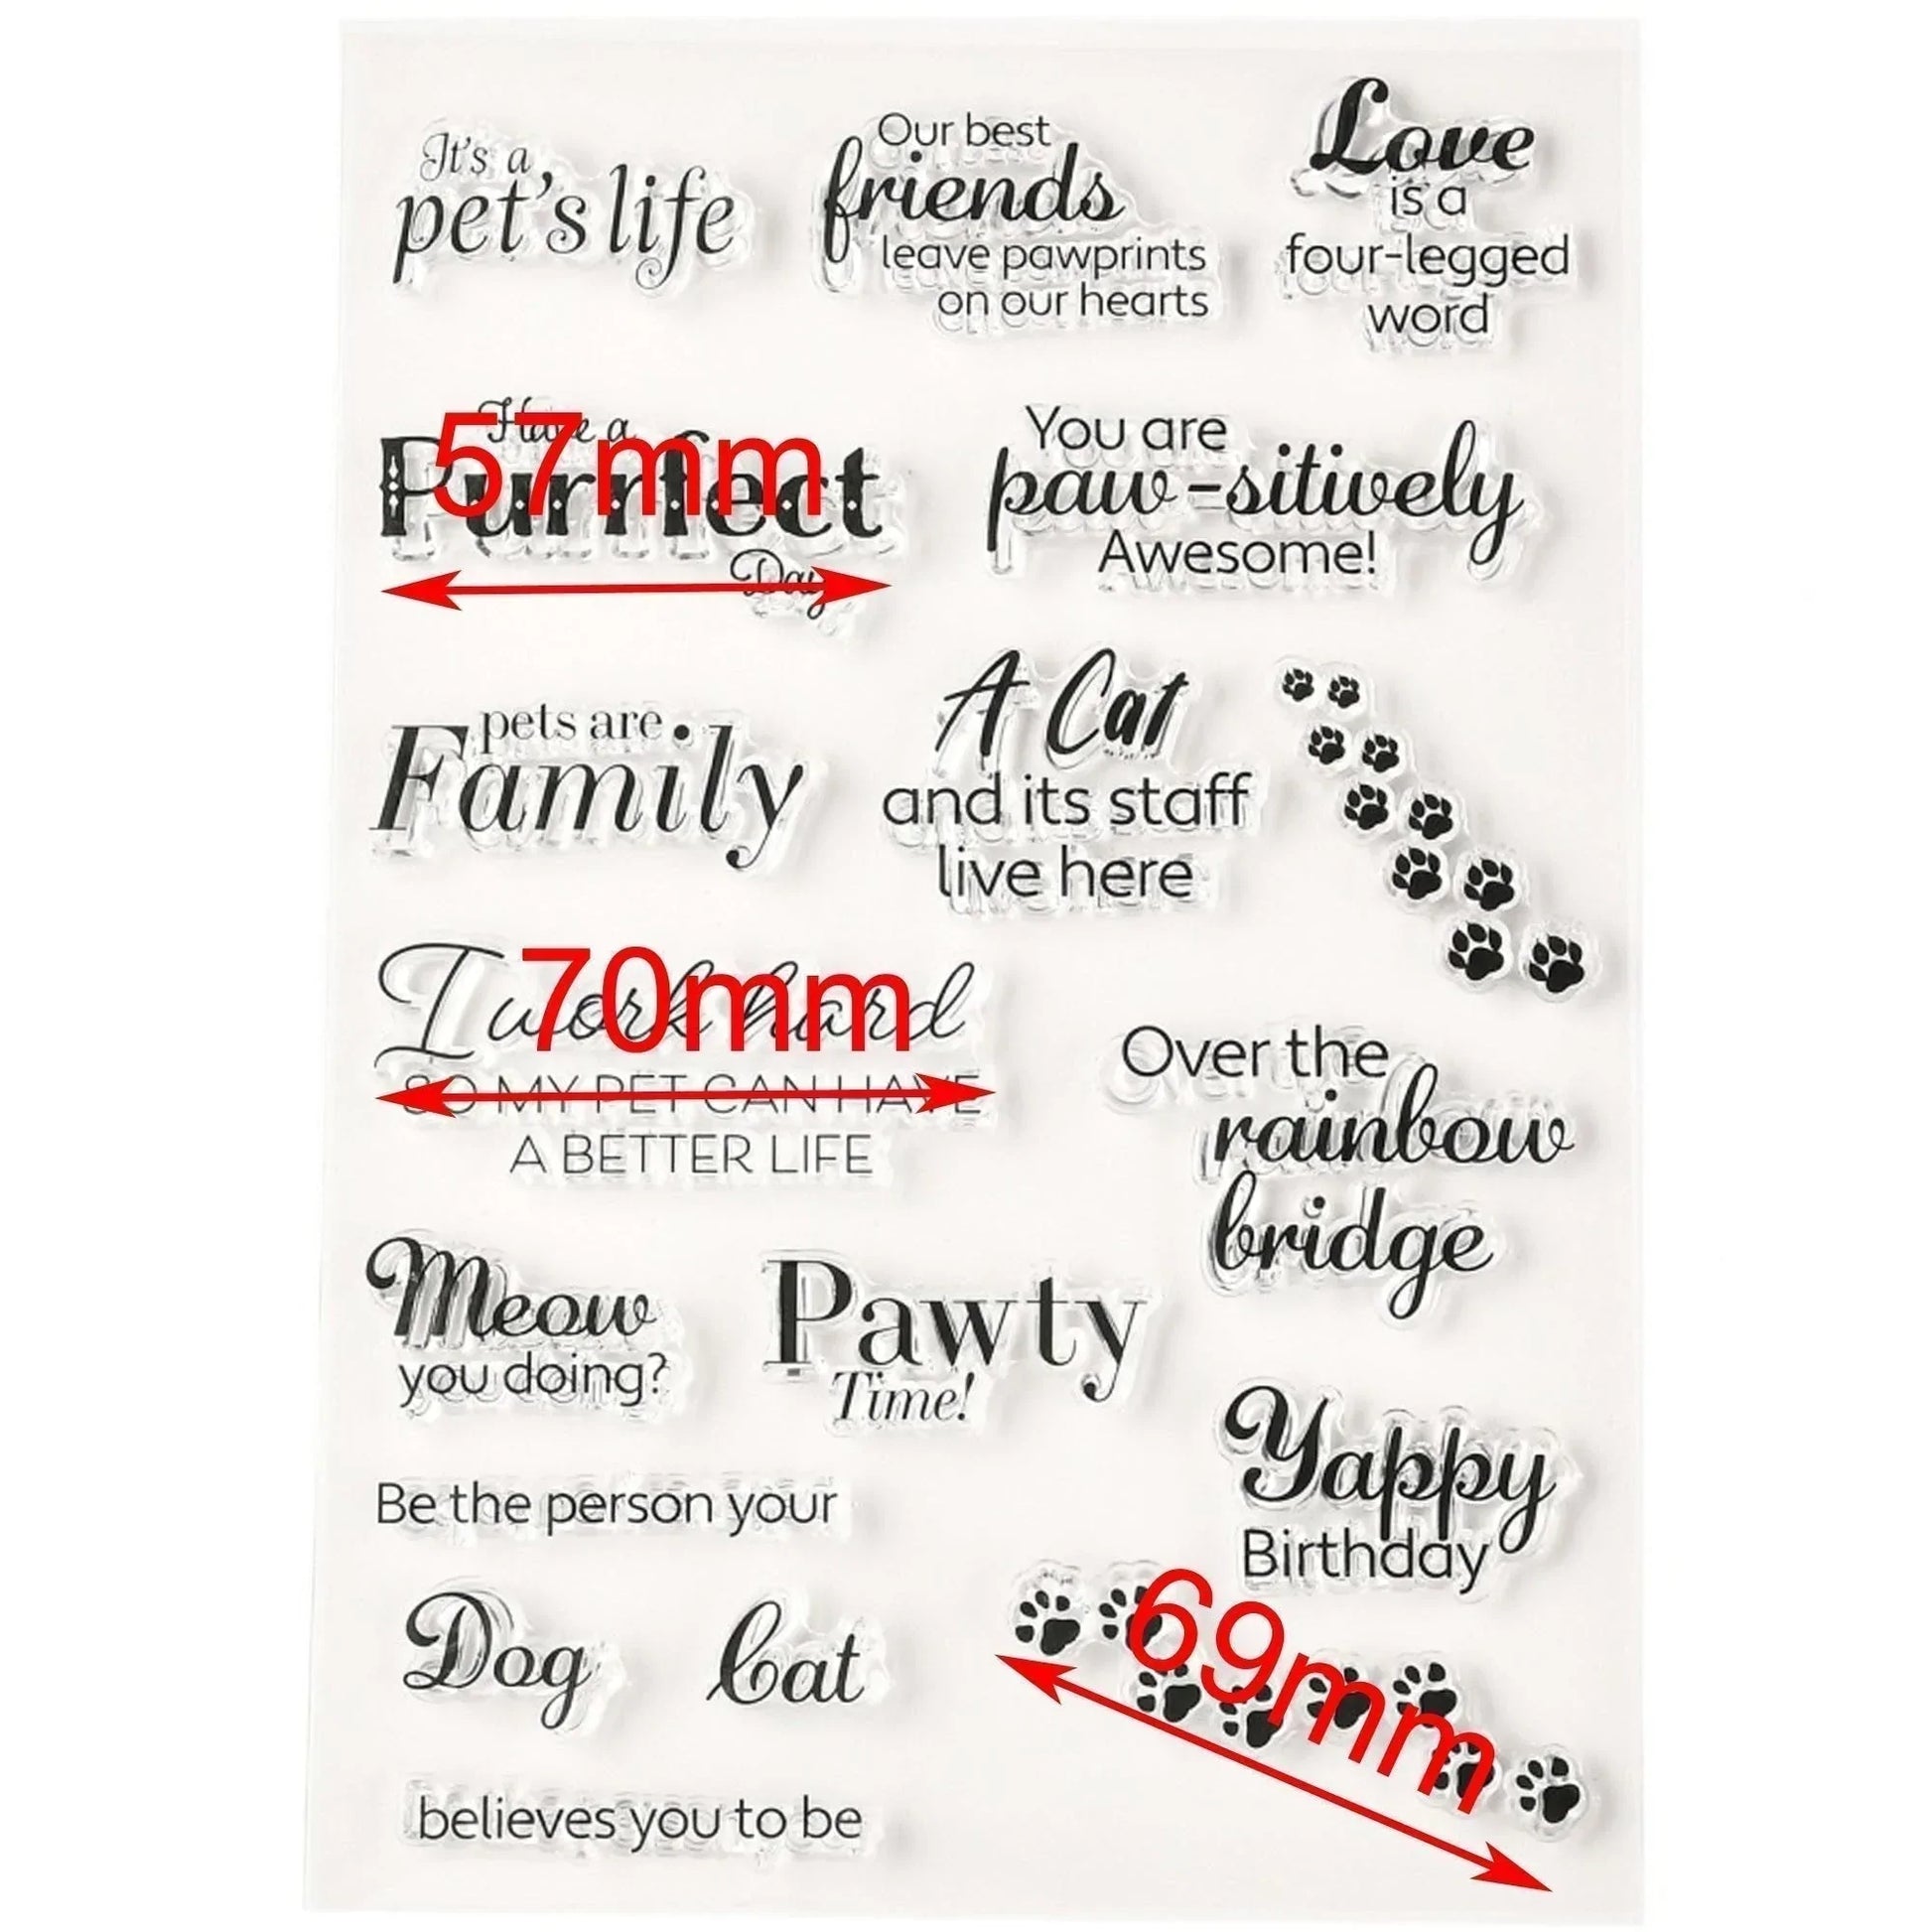 It's a
pet's life
Our best
friends
leave pawprints
on our hearts
Love
is a
four-legged
word
Have a
Purrfect
Day
57mm
You are
paw-sitively
Awesome!
pets are
Family
A Cat
and its staff
live here
I work hard
SO MY PET CAN HAVE
A BETTER LIFE
70mm
Over the
rainbow
bridge
Meow
you doing?
Pawty
Time!
Yappy
Birthday
Be the person your
Dog Cat
believes you to be
69mm